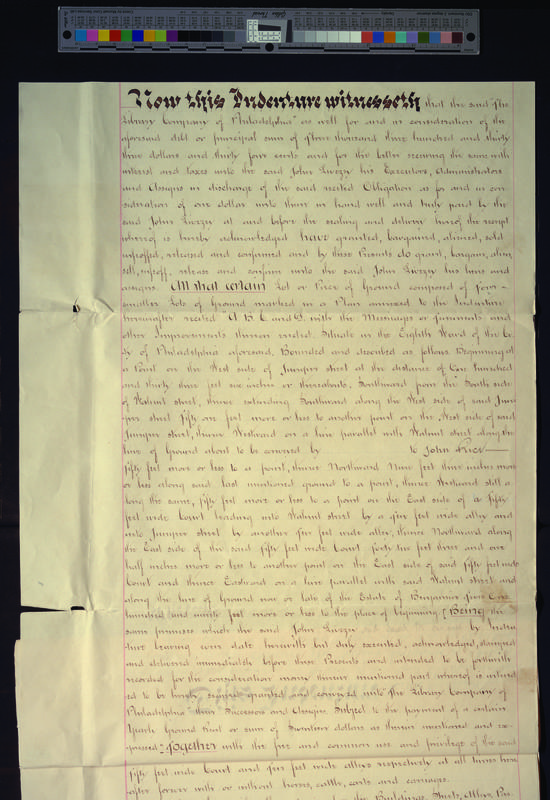 Now this Indenture witnesseth that the said "The
Library Company of Philadelphia" as well for and in consideration of the
aforesaid debt or principal sum of Three thousand three hundred and thirty
three dollars and thirty four cents and for the better securing the same with
interest and taxes unto the said John Livezey his Executors, Administrators
and Assigns in discharge of the said recited Obligation as for and in con-
sideration of one dollar unto them in hand well and truly paid by the
said John Livezey at and before the sealing and delivery hereof the receipt
whereof is hereby acknowledged have granted, bargained, aliened, sold
enfeoffed, released and confirmed and by these Presents do grant, bargain, alien,
sell, enfeoff, release and confirm unto the said John Livezey his heirs and
assigns. All that certain Lot or Piece of Ground composed of four
smaller Lots of Ground marked in a Plan annexed to the Indenture
hereinafter recited A B C and D, with the Messuages or Tenements and
other Improvements thereon erected. Situate in the Eighth Ward of the Ci-
ty of Philadelphia aforesaid, Bounded and described as follows Beginning at
a Point on the West side of Juniper street at the distance of One hundred
and thirty three feet six inches or thereabouts, Southward from the South side
of Walnut street, thence extending Southward along the West side of said Juni
per street fifty one feet more or less to another point on the West side of said
Juniper street, thence Westward on a line parallel with Walnut street along the
line of Ground about to be conveyed by to John Rice
fifty feet more or less to a point, thence Northward Nine feet three inches more
or less along said last mentioned ground to a point, thence Westward still a
long the same, fifty feet more or less to a point on the East side of a fifty
feet wide Court leading into Walnut street by a five feet wide alley and
into Juniper street by another five feet wide alley, thence Northward along
the East side of the said fifty feet wide Court forty two feet three and one
half inches more or less to another point on the East side of said fifty feet wide
Court and thence Eastward on a line parallel with said Walnut street and
along the line of Ground now or late of the Estate of Benjamin One
hundred and feet more or less to the place of beginning [Being the
same premises which the said John Livezey by Inden
ture bearing even date herewith but duly executed, acknowledged, stamped
and delivered immediately before these Presents and intended to be forthwith
recorded for the consideration money therein mentioned part whereof is intend
ed to be hereby secured granted and conveyed unto "The Library Company of
Philadelphia" their Successors and Assigns. Subject to the payment of a certain
Yearly Ground Rent or sum of Seventeen dollars as therein mentioned and ex-
pressed] Together with the free and common use and privilege of the said
fifty feet wide Court and five feet wide alleys respectively at all times here
after forever with or without horses, cattle, carts and carriages.
Buildings, Streets, Alleys, Pas